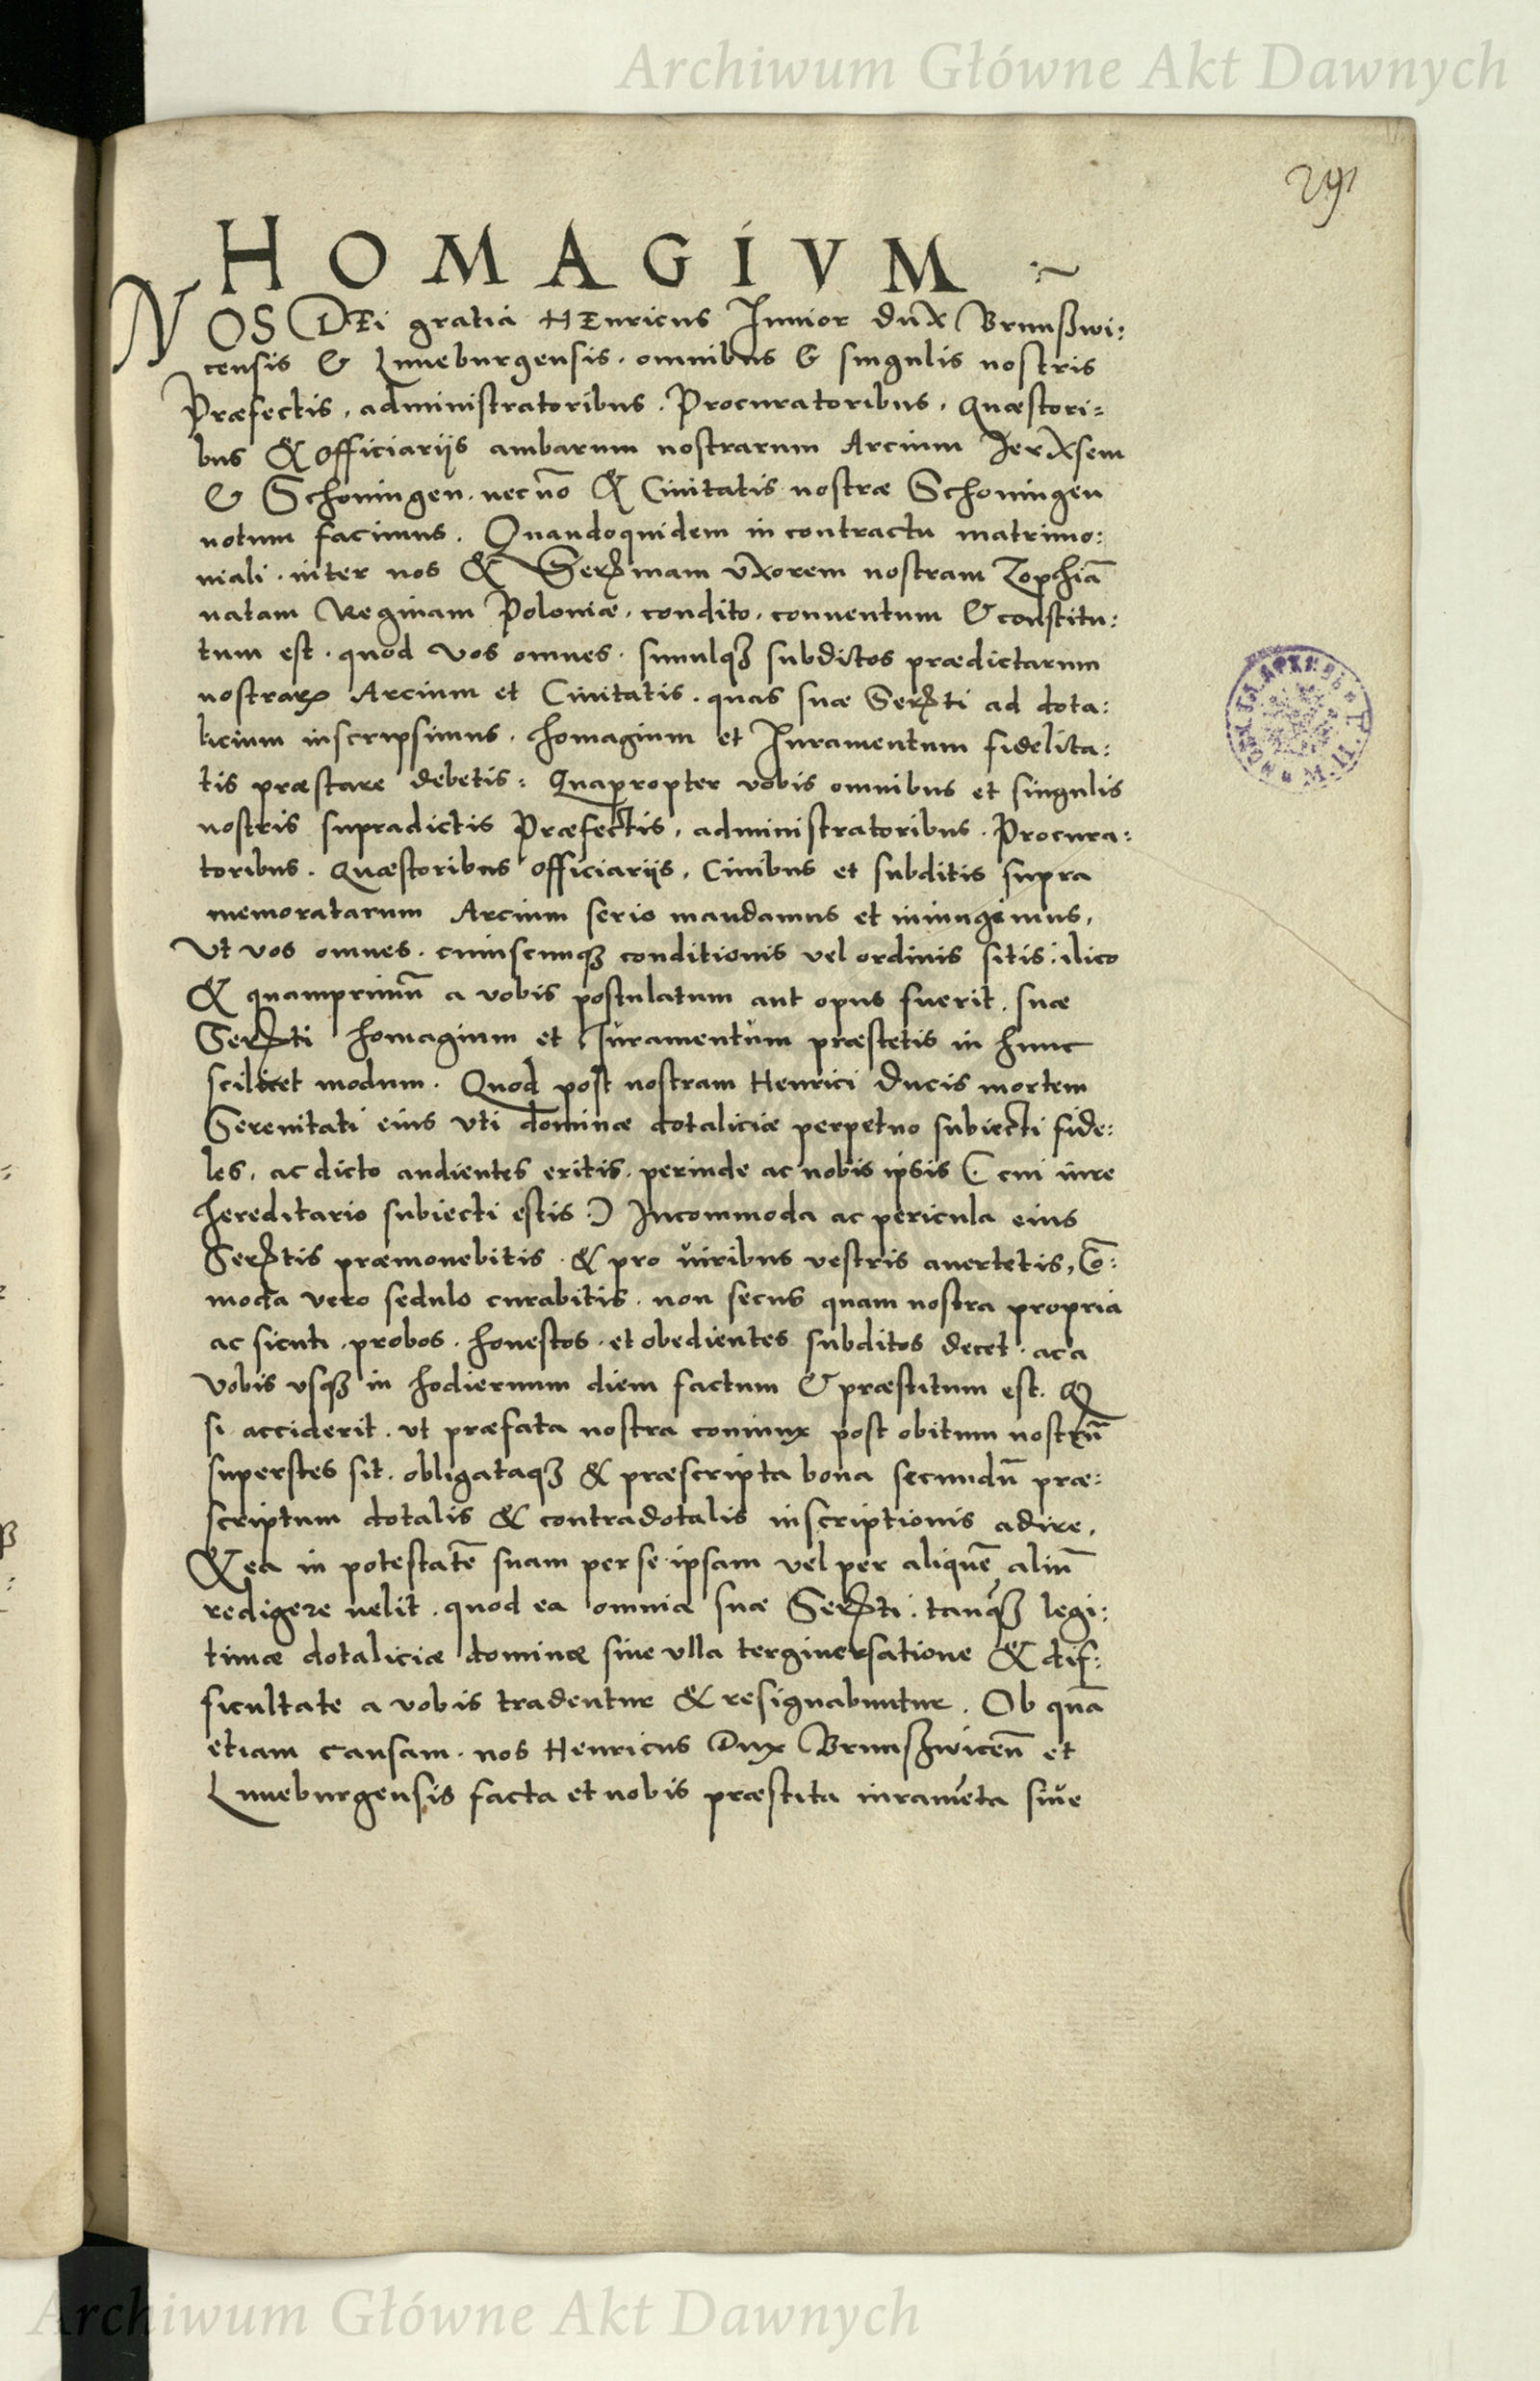 Archiwum Główne Akt Dawnych
291
HOMAGIVM
NOS DEi gratia HEnricus Junior duX Brunßwi:
censis & Luneburgensis. omnibus & singulis nostris
Præfectis, administratoribus. Procuratoribus, Quæstori=
bus & officiariis ambarum nostrarum Arcium JerXsem
& Schoningen. necnō & Ciuitatis nostræ Schoningen
notum facimus. Quandoquidem in contractu matrimo:
niali. inter nos & Serꝫmam vXorem nostram Zophiā
natam Reginam Poloniæ. condito. conuentum & constitu:
tum est. quod vos omnes. simulqꝫ subditos prædictarum
nostrarꝝ Arcium et Ciuitatis. quas suæ Serꝫti ad dota:
licium inscripsimus. homagium et Juramentum fidelita:
tis præstare debetis: Quapropter vobis omnibus et singulis
nostris supradictis Præfectis, administratoribus. Procura:
toribus. Quæstoribus officiariis, Ciuibus et subditis supra
memoratarum Arcium serio mandamus et iniungimus,
Vt vos omnes. cuiuscunqꝫ conditionis vel ordinis sitis. ilico
& quamprimū a vobis postulatum aut opus fuerit. suæ
Serꝫti homagium et Juramentum præstetis in hunc
scilicet modum. Quod post nostram Henrici ducis mortem
Serenitati eius vti dominæ dotaliciæ perpetuo subiecti fide:
les, ac dicto audientes eritis. perinde ac nobis ipsis (. cui iure
hereditario subiecti estis .) Incommoda ac pericula eius
Serꝫtis præmonebitis. & pro viribus vestris auertetis, Cō:
moda vero sedulo curabitis. non secus quam nostra propria
ac sicuti. probos. honestos. et obedientes subditos decet. ac a
vobis vsqꝫ in hodiernum diem factum & præstitum est. Q
si acciderit. vt præfata nostra coniunx post obitum nostrū
superstes sit. obligataqꝫ & præscripta bona secundū præ:
scriptum dotalis & contradotalis inscriptionis adire,
& ea in potestatē suam per se ipsam vel per aliquē aliū
redigere uelit. quod ea omnia suæ Serꝫti. tanqꝫ legi:
timæ dotaliciæ dominæ sine vlla tergiuersatione & dif:
ficultate a vobis tradentur & resignabuntur. Ob quā
etiam causam. nos Henricus Dux Brunßwiceñ et
Luneburgensis facta et nobis præstita iuramēta siue
Archiwum Główne Akt Dawnych